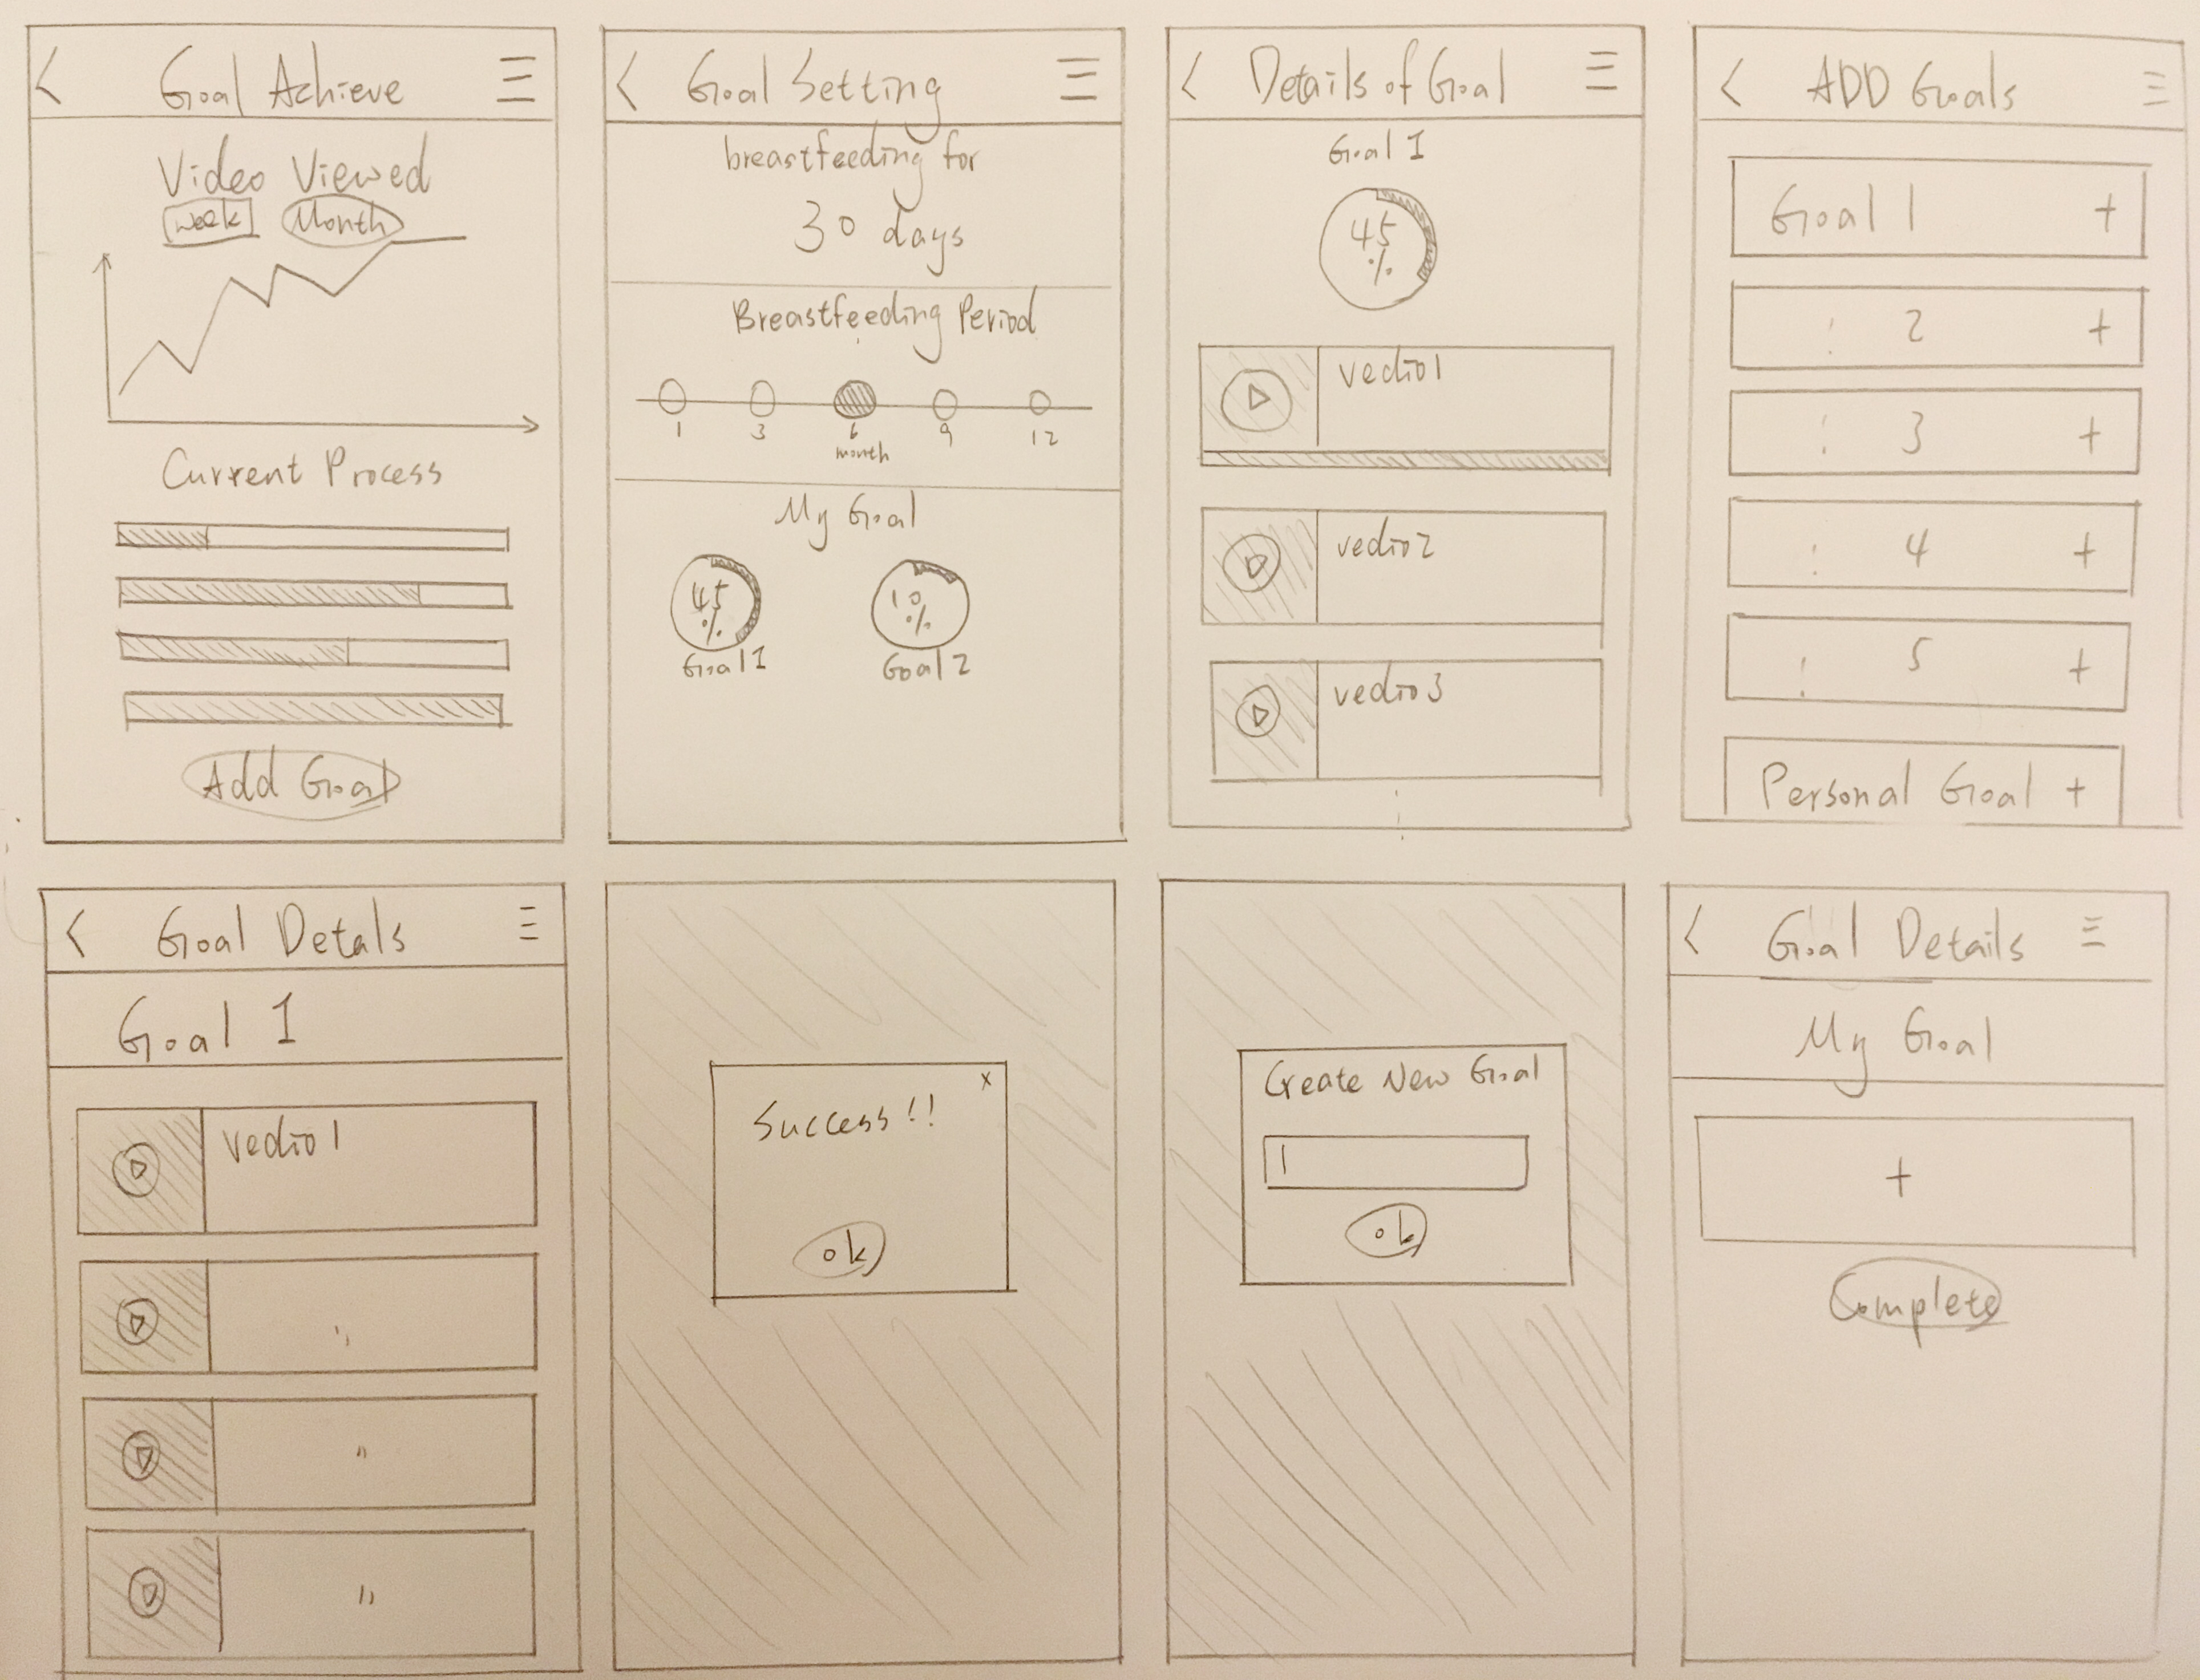 Goal Achieve
Video Viewed
week Month
Current Process
Add Goal
Goal Setting
breastfeeding for
30 days
Breastfeeding Period
1 3 6 9 12
month
My Goal
45 % 10 %
Goal 1 Goal 2
Details of Goal
Goal 1
45
%
vedio1
vedio2
vedio3
ADD Goals
Goal 1 +
2 +
3 +
4 +
5 +
Personal Goal +
Goal Detals
Goal 1
vedio1
x
Success!!
ok
Create New Goal
ok
Goal Details
My Goal
+
Complete